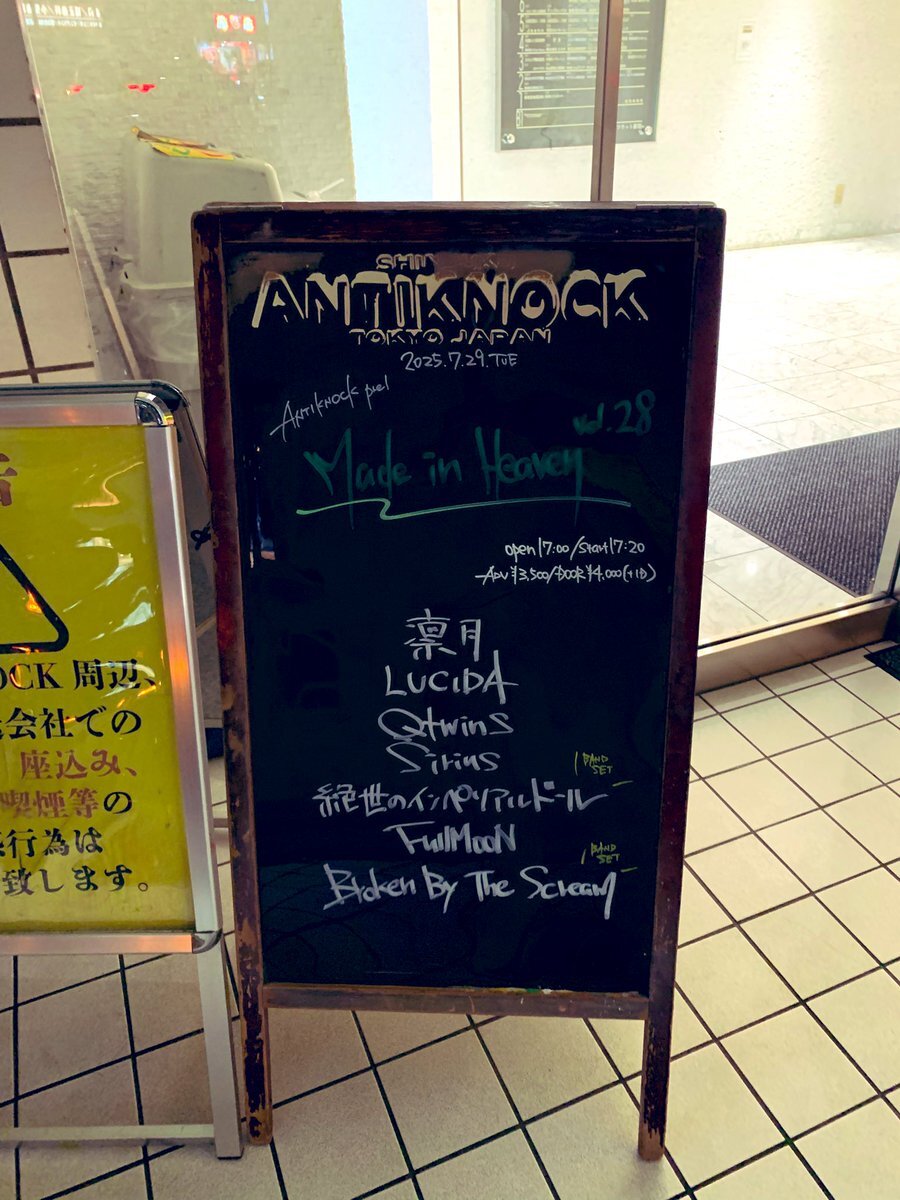 ANTIKNOCK
TOKYO JAPAN
2025.7.29.TUE
ANTIKNOCK
vol.28
Made in Heaven
open17:00/Start17:20
ADV¥3,500/DOOR¥4,000(+1D)
凛月
LUCIDA
Qtwins
Sirius
BAND SET
絶世のインペリアルドール
FullMooN
BAND SET
Broken By The Scream
OCK 周辺、
会社での
座込み、
喫煙等の
行為は
致します。